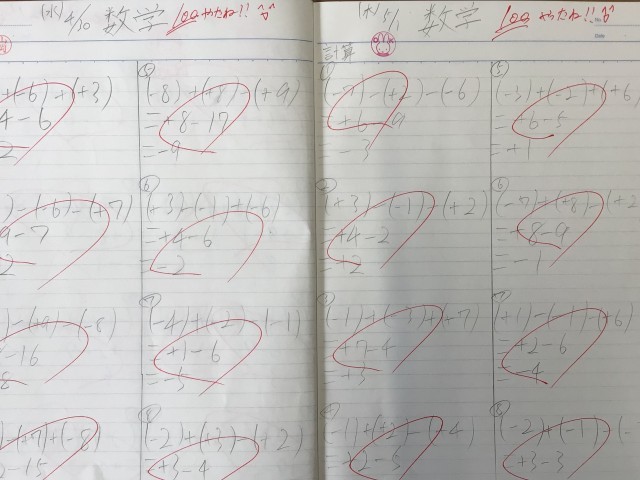 (水) 4/10 数学 100 やったね!!
+(-6)+(+3)
4-6
2
)-(-6)-(+7)
9-7
2
)-(+9)-(-8)
-16
8
)-(+7)+(-8)
2-15
⑤
(-8)+(+8)-(+9)
=+8-17
=-9
⑥
(+3)-(-1)+(-6)
=+4-6
=-2
⑦
(-4)+(-2)-(-1)
=+1-6
=-5
⑧
(-2)+(+3)-(+2)
=+3-4
(水) 5/1 数学 100 やったね!!
No.
Date
計算
(-7)-(+2)-(-6)
=+6-9
-3
(+3)-(-1)-(+2)
=+4-2
=+2
(-1)+(-3)+(+7)
=+7-4
=+3
-1)+(+2)-(-4)
⑤
(-3)+(-2)+(+6)
=+6-5
=+1
⑥
+(+8)-(+2
=+8-9
=-1
⑦
(+1)-(-1)-(+6)
=+2-6
=-4
⑧
(-2)+(-1)
=+3-3